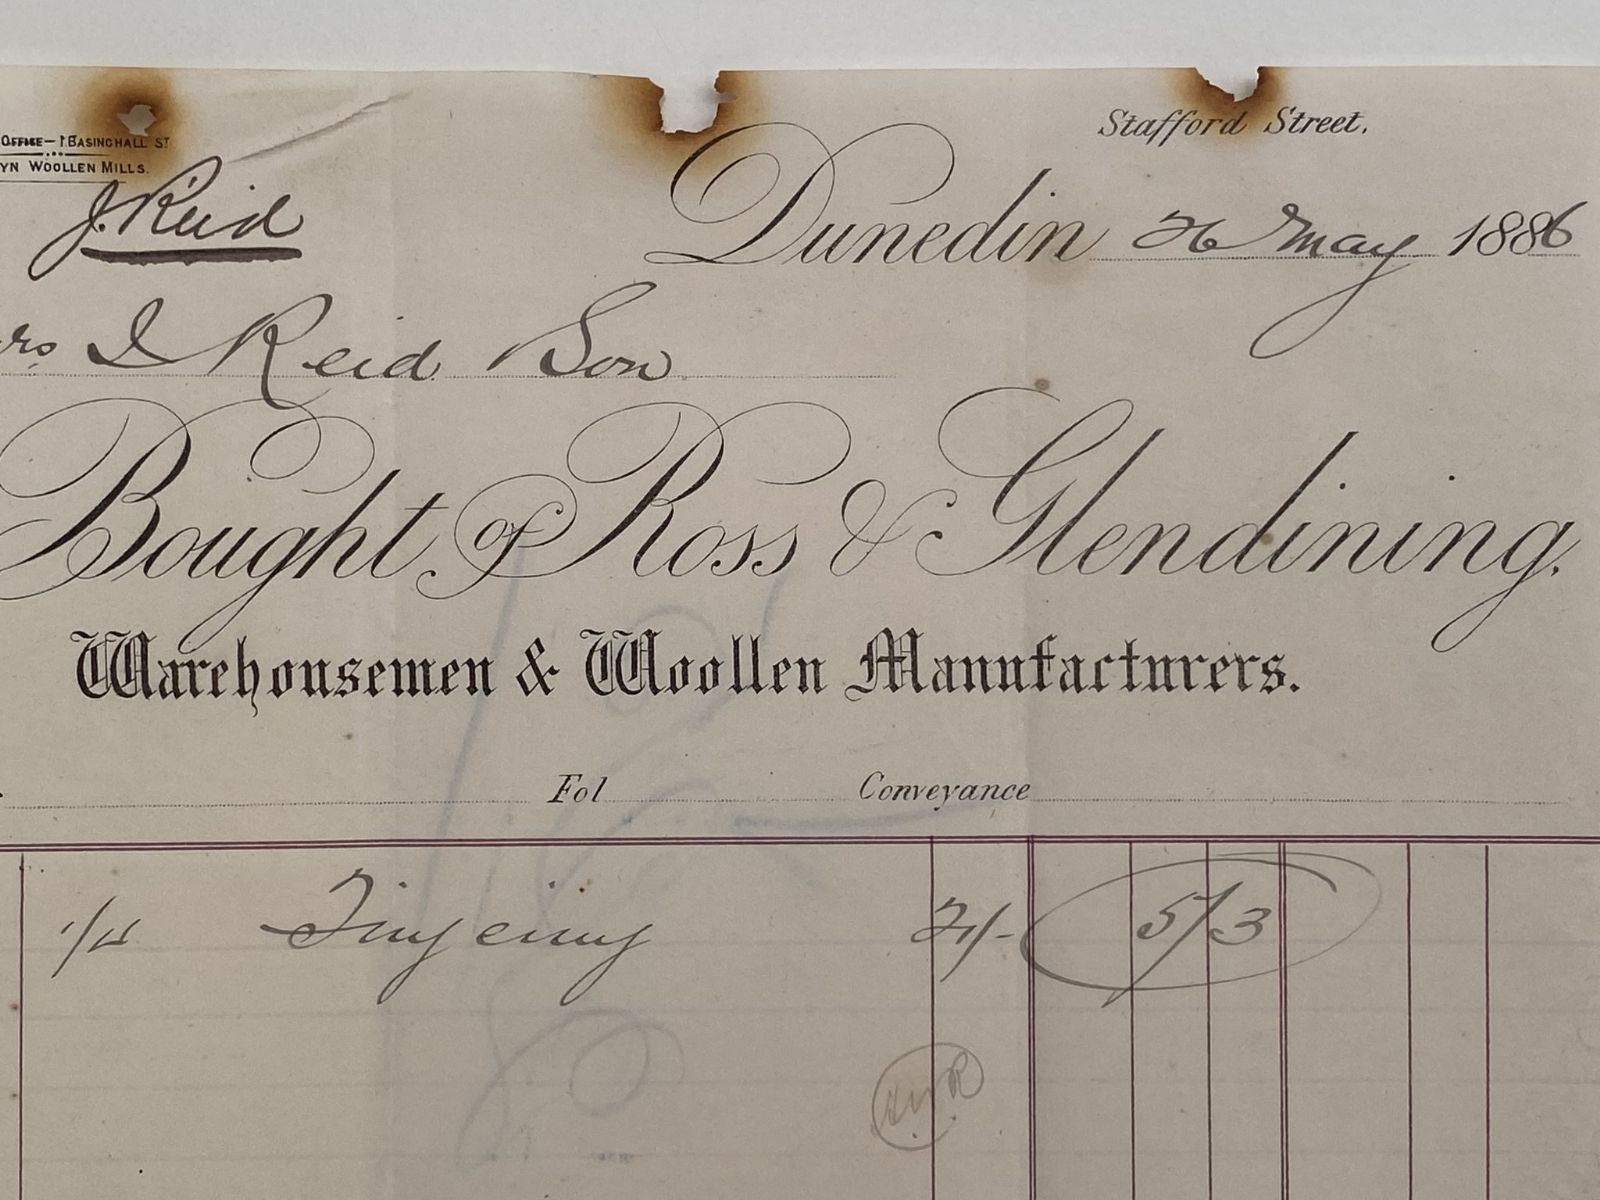 Stafford Street.
OFFICE-1 BASINGHALL ST
YN WOOLLEN MILLS.
J. Reid
Dunedin 26 May 1886
rs. J Reid Son
Bought of Ross & Glendining.
Warehousemen & Woollen Manufacturers.
Fol Conveyance
1/4 21/- 5/3